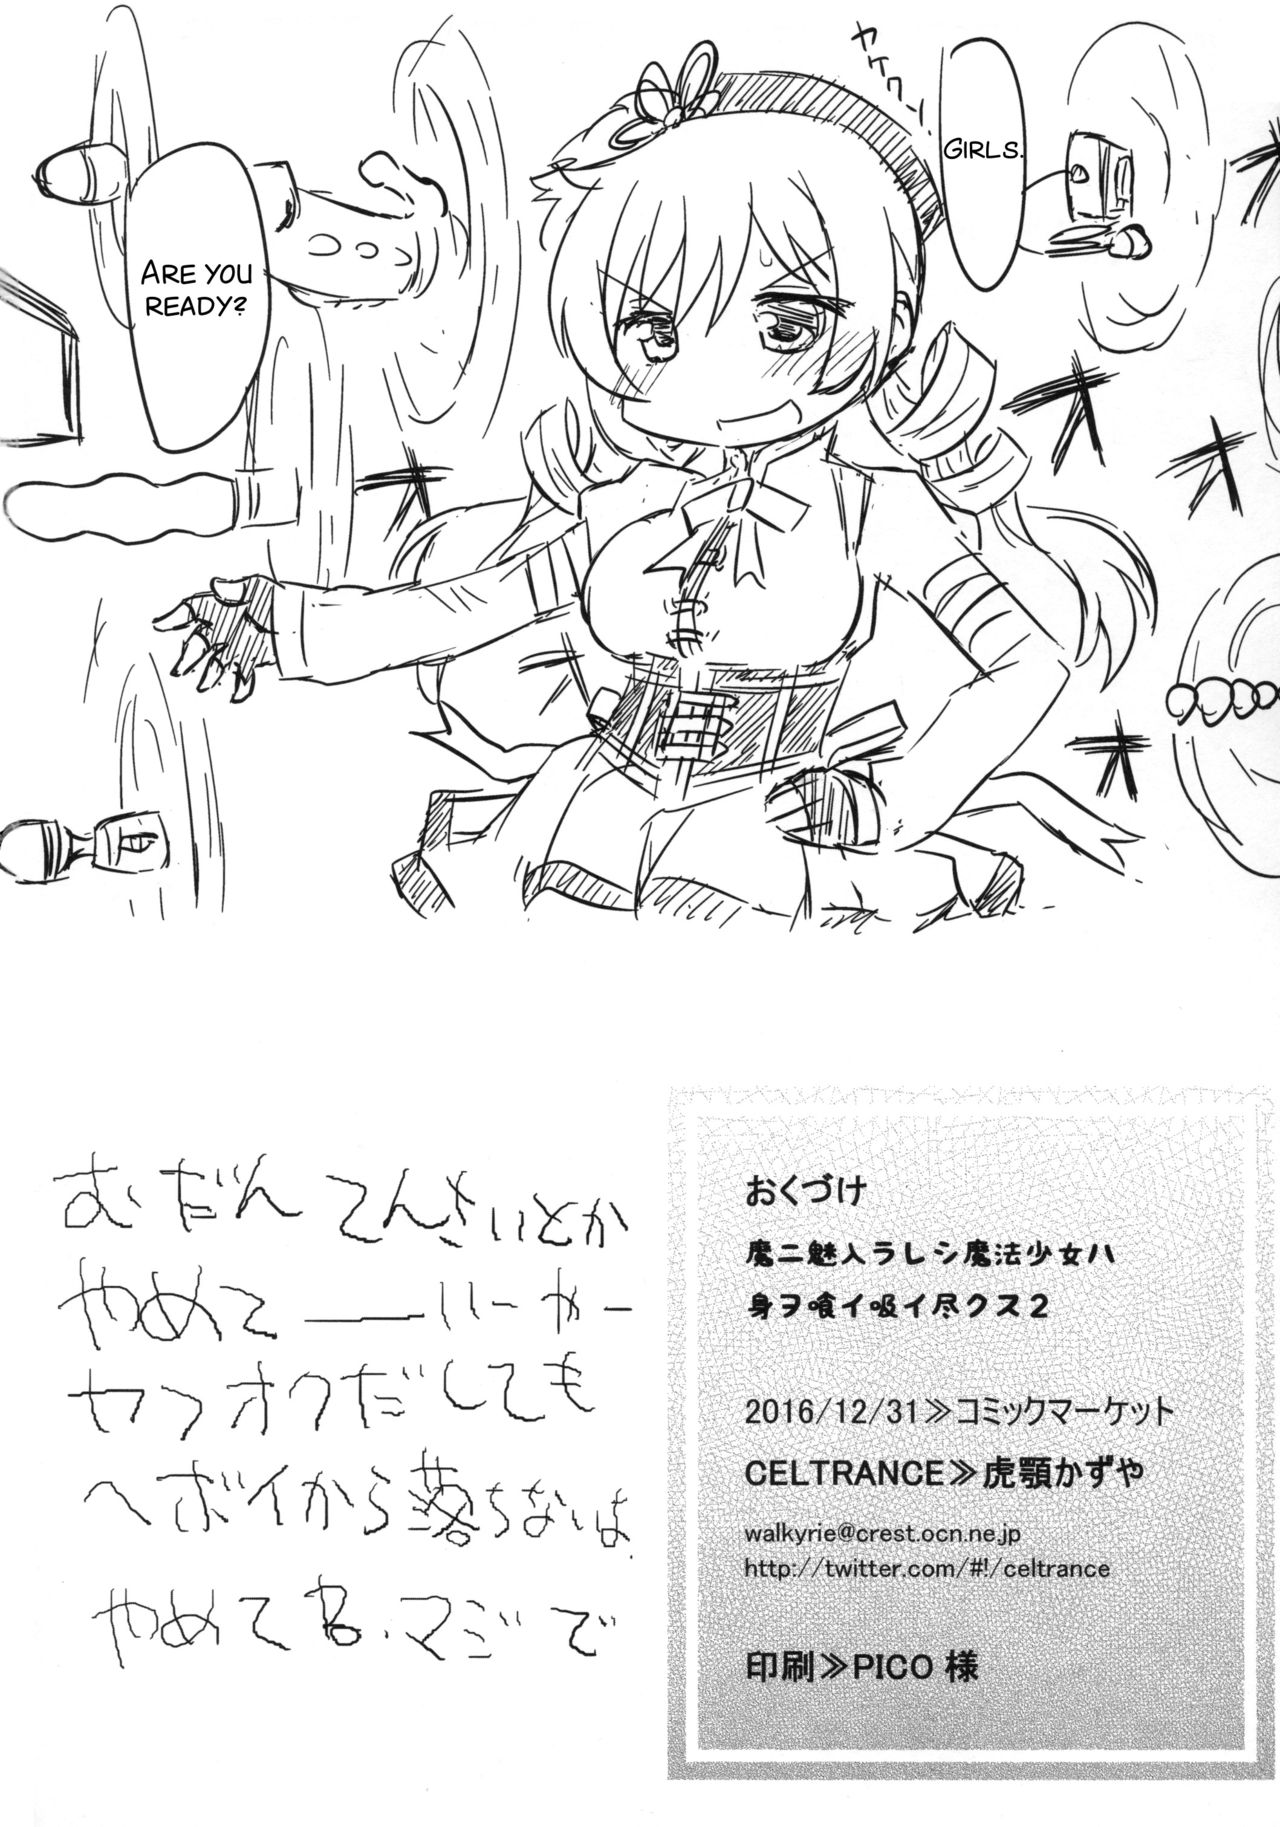 ヤケクソ!
GIRLS.
ARE YOU
READY?
むだんてんさいとか
やめて
ヤフオクだしても
へボイから落ちないは
やめてる、マジで
おくづけ
魔ニ魅入ラレシ魔法少女ハ
身ヲ喰イ吸イ尽クス2
2016/12/31≫コミックマーケット
CELTRANCE≫虎顎かずや
walkyrie@crest.ocn.ne.jp
http://twitter.com/#!/celtrance
印刷≫PICO 様